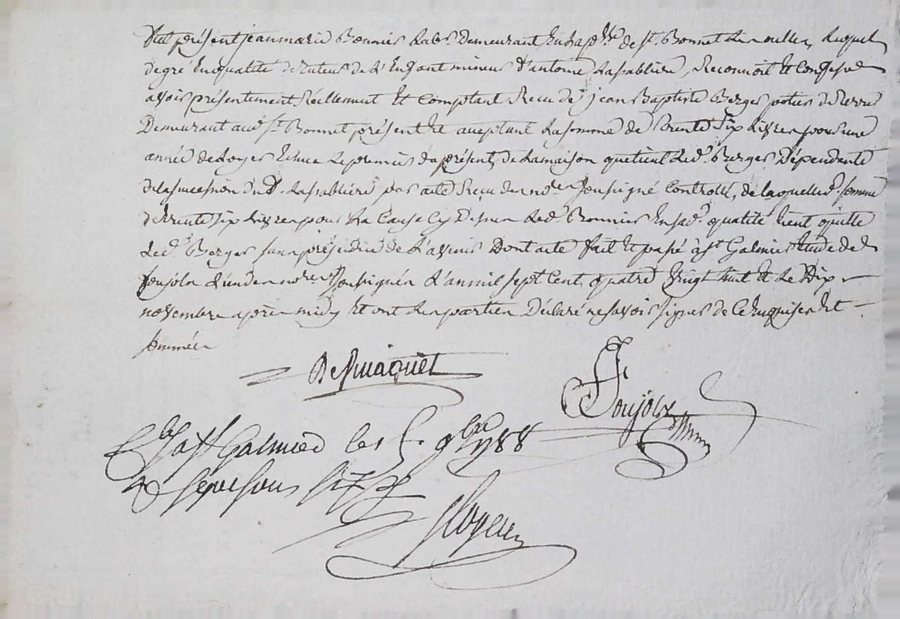 Fut présent jean marie Bonnier lab.r Demeurant En la p.sse de St. Bonnet Les oulles, lequel
de gré En qualité de tuteur de L'Enfant mineur d'antoine Lasablière, Reconnoit Et Confesse
avoir présentement Réellement Et Comptant Receu de jean Baptiste Berger potier de terre
Demeurant aud. St. Bonnet présent Et aceptant La somme de trente Six Livres pour une
année de Loyer Echue Le premier du présent, de La maison que tient Led. Berger Dépendante
de la succession du d. Lasablière par acte Receu du no.re soussigné Controllé, de laquelle somme
de trente six Livres pour La Cause Cy Dessus Led. Bonnier En sad. qualité tient quitte
Led. Berger sans préjudice de L'avenir Dont acte fait Et passé à St. Galmier Etude de
Poujolx L'un des no.res Soussignés L'an mil sept Cent quatre Vingt huit Et Le Dix
novembre après midy Et ont Les parties Déclaré ne savoir signer de Ce Enquises Et
sommées
Poujolx
à St Galmier le 9bre 1788
R quinze sous